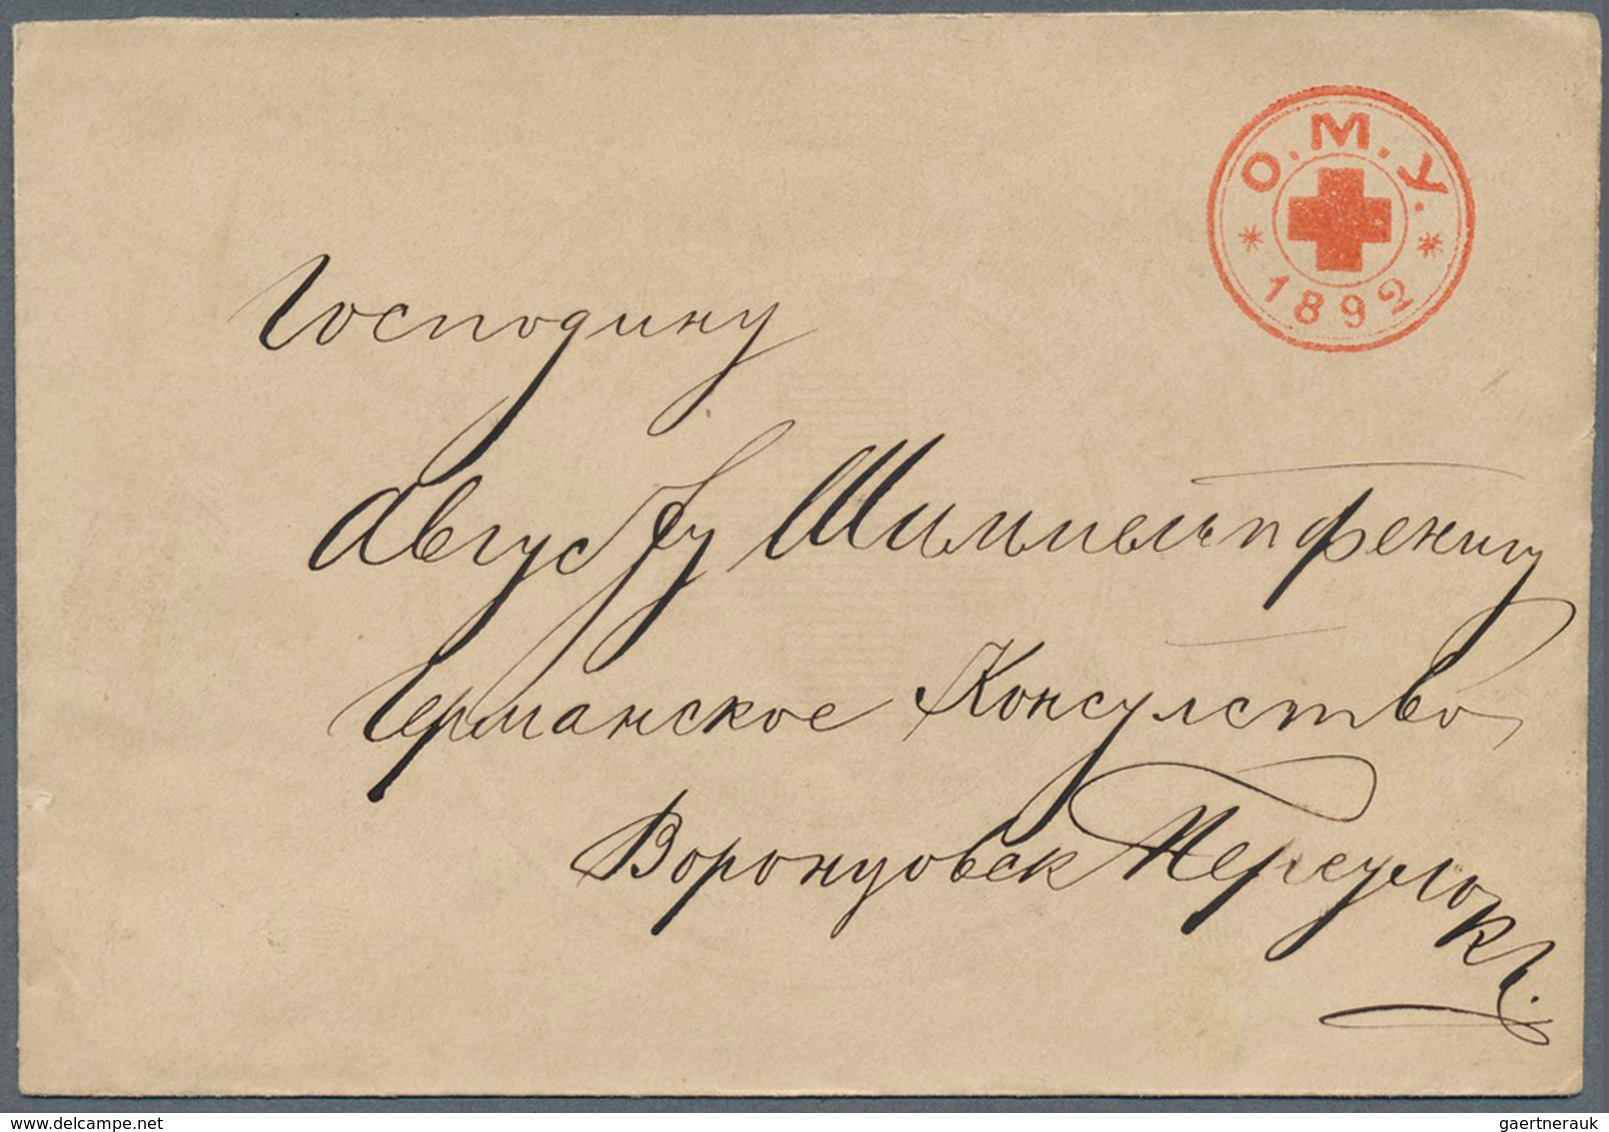 О.М.У.
* 1892 *
Господину
Августу Шиммельпфенигу
Германское Консулство
Воронцовск Переулокъ.
gaertnerauk